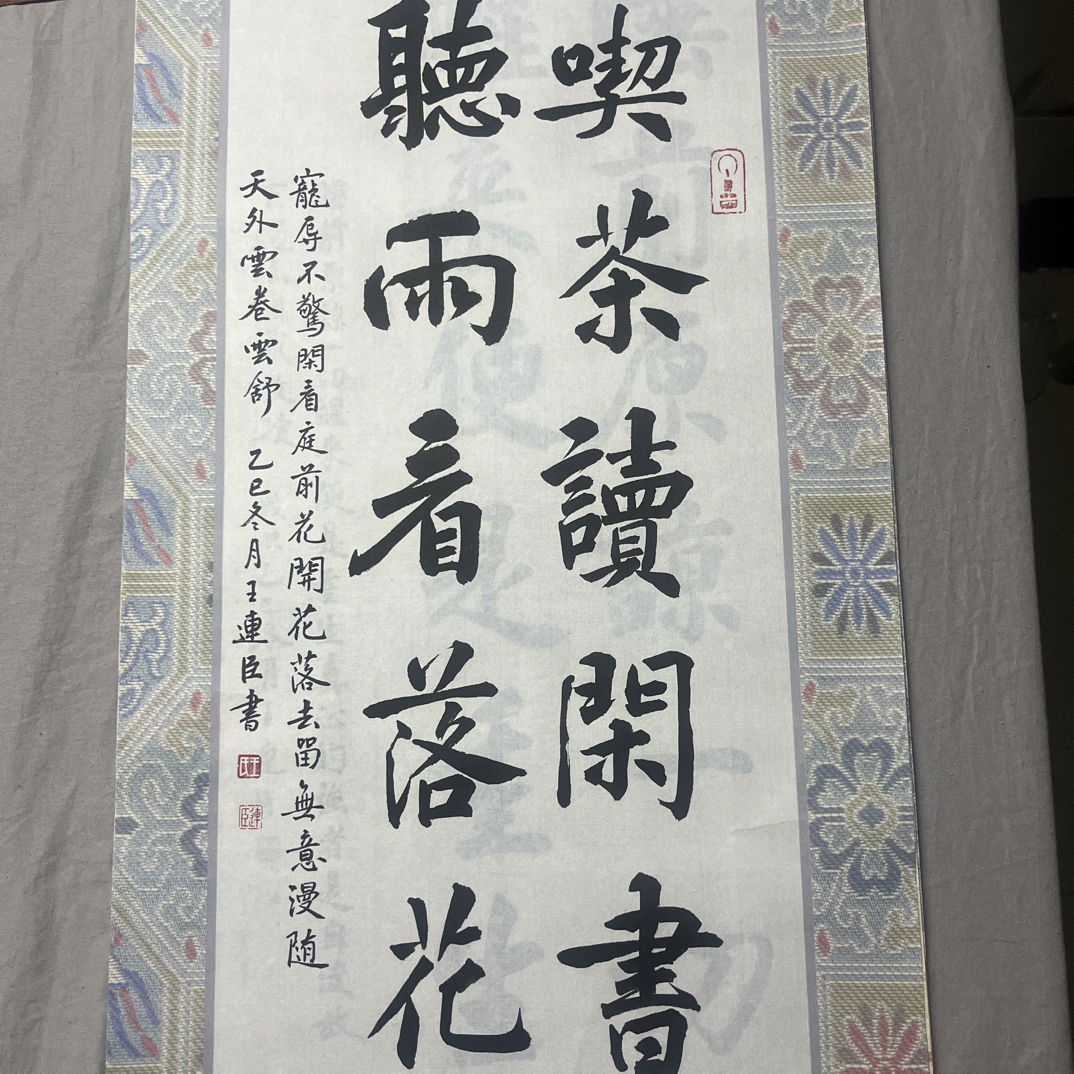 喫茶讀閑書
聽雨看落花
寵辱不驚閑看庭前花開花落去留無意漫随
天外雲卷雲舒 乙巳冬月王連臣書
王
連臣